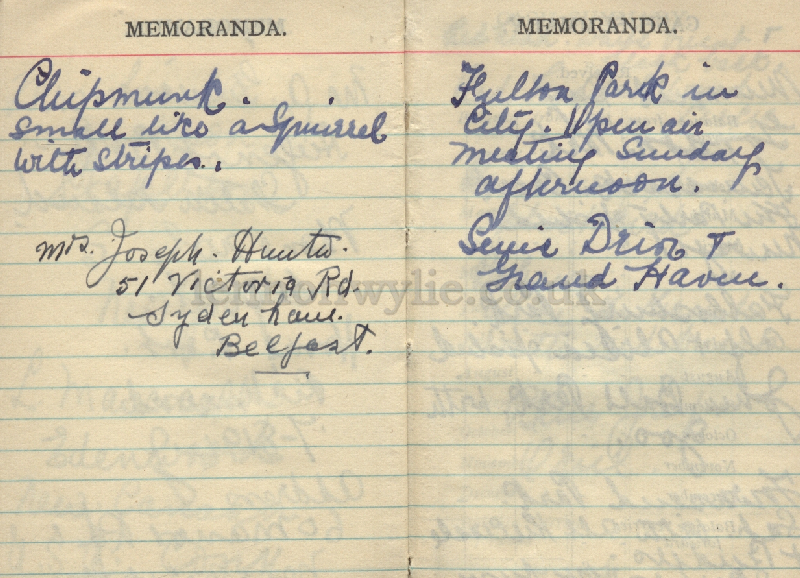 MEMORANDA.
Chipmunk.
small like a Squirrel
with stripes.
Mrs. Joseph. Hunter.
51 Victoria Rd.
Sydenham.
Belfast.
MEMORANDA.
Park in
City. Open air
meeting Sunday
afternoon.
Drive +
Grand Haven.
lennonwylie.co.uk